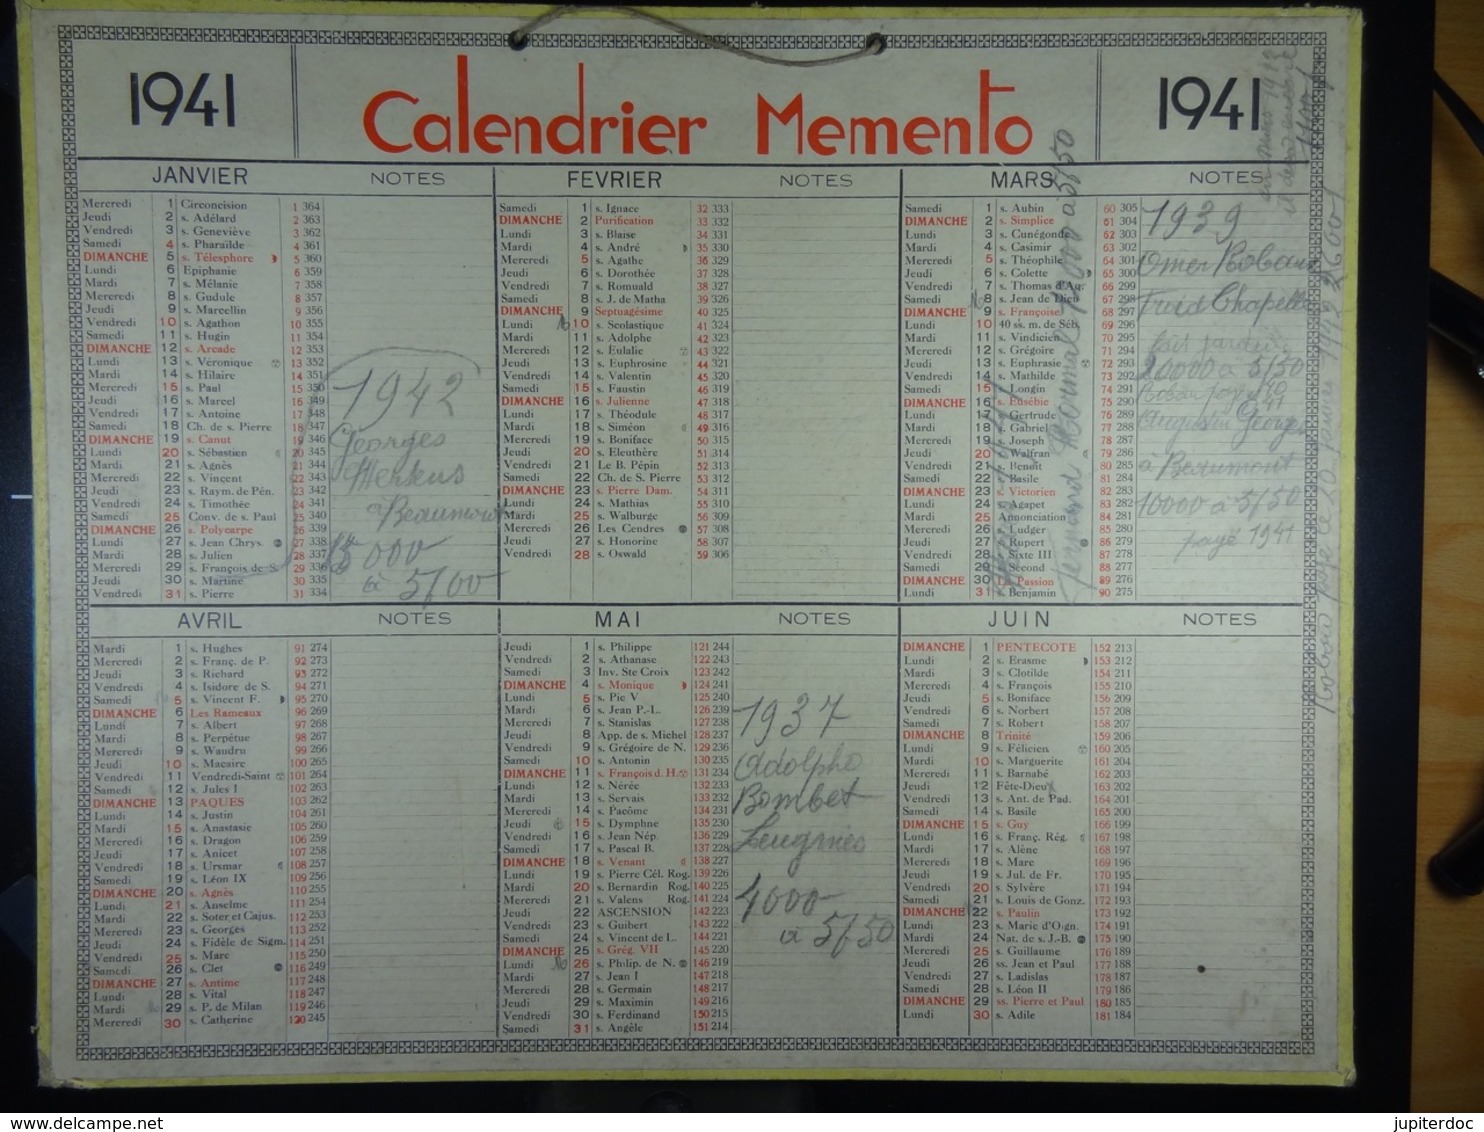 1941
Calendrier Memento
1941
JANVIER NOTES
Mercredi 1 Circoncision 1 364
Jeudi 2 s. Adélard 2 363
Vendredi 3 s. Geneviève 3 362
Samedi 4 s. Pharaïlde 4 361
DIMANCHE 5 s. Télesphore 5 360
Lundi 6 Epiphanie 6 359
Mardi 7 s. Mélanie 7 358
Mercredi 8 s. Gudule 8 357
Jeudi 9 s. Marcellin 9 356
Vendredi 10 s. Agathon 10 355
Samedi 11 s. Hugin 11 354
DIMANCHE 12 s. Arcade 12 353
Lundi 13 s. Véronique 13 352
Mardi 14 s. Hilaire 14 351
Mercredi 15 s. Paul 15 350
Jeudi 16 s. Marcel 16 349
Vendredi 17 s. Antoine 17 348
Samedi 18 Ch. de s. Pierre 18 347
DIMANCHE 19 s. Canut 19 346
Lundi 20 s. Sébastien 20 345
Mardi 21 s. Agnès 21 344
Mercredi 22 s. Vincent 22 343
Jeudi 23 s. Raym. de Pén. 23 342
Vendredi 24 s. Timothée 24 341
Samedi 25 Conv. de s. Paul 25 340
DIMANCHE 26 s. Polycarpe 26 339
Lundi 27 s. Jean Chrys. 27 338
Mardi 28 s. Julien 28 337
Mercredi 29 s. François de S. 29 336
Jeudi 30 s. Martine 30 335
Vendredi 31 s. Pierre 31 334
1942
Georges
à Beaumont
15000
à 5/00
FEVRIER NOTES
Samedi 1 s. Ignace 32 333
DIMANCHE 2 Purification 33 332
Lundi 3 s. Blaise 34 331
Mardi 4 s. André 35 330
Mercredi 5 s. Agathe 36 329
Jeudi 6 s. Dorothée 37 328
Vendredi 7 s. Romuald 38 327
Samedi 8 s. J. de Matha 39 326
DIMANCHE 9 Septuagésime 40 325
Lundi 10 s. Scolastique 41 324
Mardi 11 s. Adolphe 42 323
Mercredi 12 s. Eulalie 43 322
Jeudi 13 s. Euphrosine 44 321
Vendredi 14 s. Valentin 45 320
Samedi 15 s. Faustin 46 319
DIMANCHE 16 s. Julienne 47 318
Lundi 17 s. Théodule 48 317
Mardi 18 s. Siméon 49 316
Mercredi 19 s. Boniface 50 315
Jeudi 20 s. Eleuthère 51 314
Vendredi 21 Le B. Pépin 52 313
Samedi 22 Ch. de S. Pierre 53 312
DIMANCHE 23 s. Pierre Dam. 54 311
Lundi 24 s. Mathias 55 310
Mardi 25 s. Walburge 56 309
Mercredi 26 Les Cendres 57 308
Jeudi 27 s. Honorine 58 307
Vendredi 28 s. Oswald 59 306
MARS NOTES
Samedi 1 s. Aubin 60 305
DIMANCHE 2 s. Simplice 61 304
Lundi 3 s. Cunégonde 62 303
Mardi 4 s. Casimir 63 302
Mercredi 5 s. Théophile 64 301
Jeudi 6 s. Colette 65 300
Vendredi 7 s. Thomas d'Aq. 66 299
Samedi 8 s. Jean de Dieu 67 298
DIMANCHE 9 s. Françoise 68 297
Lundi 10 40 ss. m. de Séb. 69 296
Mardi 11 s. Vindicien 70 295
Mercredi 12 s. Grégoire 71 294
Jeudi 13 s. Euphrasie 72 293
Vendredi 14 s. Mathilde 73 292
Samedi 15 s. Longin 74 291
DIMANCHE 16 s. Eusébie 75 290
Lundi 17 s. Gertrude 76 289
Mardi 18 s. Gabriel 77 288
Mercredi 19 s. Joseph 78 287
Jeudi 20 s. Walfran 79 286
Vendredi 21 s. Benoît 80 285
Samedi 22 s. Basile 81 284
DIMANCHE 23 s. Victorien 82 283
Lundi 24 s. Agapet 83 282
Mardi 25 Annonciation 84 281
Mercredi 26 s. Ludger 85 280
Jeudi 27 s. Rupert 86 279
Vendredi 28 s. Sixte III 87 278
Samedi 29 s. Second 88 277
DIMANCHE 30 La Passion 89 276
Lundi 31 s. Benjamin 90 275
1939
Omer
Froid Chapelle
20000 à 5/50
Georges
à Beaumont
10000 à 5/50
payé 1941
AVRIL NOTES
Mardi 1 s. Hughes 91 274
Mercredi 2 s. Franç. de P. 92 273
Jeudi 3 s. Richard 93 272
Vendredi 4 s. Isidore de S. 94 271
Samedi 5 s. Vincent F. 95 270
DIMANCHE 6 Les Rameaux 96 269
Lundi 7 s. Albert 97 268
Mardi 8 s. Perpétue 98 267
Mercredi 9 s. Waudru 99 266
Jeudi 10 s. Macaire 100 265
Vendredi 11 Vendredi-Saint 101 264
Samedi 12 s. Jules I 102 263
DIMANCHE 13 PAQUES 103 262
Lundi 14 s. Justin 104 261
Mardi 15 s. Anastasie 105 260
Mercredi 16 s. Dragon 106 259
Jeudi 17 s. Anicet 107 258
Vendredi 18 s. Ursmar 108 257
Samedi 19 s. Léon IX 109 256
DIMANCHE 20 s. Agnès 110 255
Lundi 21 s. Anselme 111 254
Mardi 22 s. Soter et Cajus. 112 253
Mercredi 23 s. Georges 113 252
Jeudi 24 s. Fidèle de Sigm. 114 251
Vendredi 25 s. Marc 115 250
Samedi 26 s. Clet 116 249
DIMANCHE 27 s. Antime 117 248
Lundi 28 s. Vital 118 247
Mardi 29 s. P. de Milan 119 246
Mercredi 30 s. Catherine 120 245
MAI NOTES
Jeudi 1 s. Philippe 121 244
Vendredi 2 s. Athanase 122 243
Samedi 3 Inv. Ste Croix 123 242
DIMANCHE 4 s. Monique 124 241
Lundi 5 s. Pie V 125 240
Mardi 6 s. Jean P.-L. 126 239
Mercredi 7 s. Stanislas 127 238
Jeudi 8 App. de s. Michel 128 237
Vendredi 9 s. Grégoire de N. 129 236
Samedi 10 s. Antonin 130 235
DIMANCHE 11 s. François d. H. 131 234
Lundi 12 s. Nérée 132 233
Mardi 13 s. Servais 133 232
Mercredi 14 s. Pacôme 134 231
Jeudi 15 s. Dymphne 135 230
Vendredi 16 s. Jean Nép. 136 229
Samedi 17 s. Pascal B. 137 228
DIMANCHE 18 s. Venant 138 227
Lundi 19 s. Pierre Cél. Rog. 139 226
Mardi 20 s. Bernardin Rog. 140 225
Mercredi 21 s. Valens Rog. 141 224
Jeudi 22 ASCENSION 142 223
Vendredi 23 s. Guibert 143 222
Samedi 24 s. Vincent de L. 144 221
DIMANCHE 25 s. Grég. VII 145 220
Lundi 26 s. Philip. de N. 146 219
Mardi 27 s. Jean I 147 218
Mercredi 28 s. Germain 148 217
Jeudi 29 s. Maximin 149 216
Vendredi 30 s. Ferdinand 150 215
Samedi 31 s. Angèle 151 214
1937
Adolphe
Bombet
Leugnies
4000
à 5/50
JUIN NOTES
DIMANCHE 1 PENTECOTE 152 213
Lundi 2 s. Erasme 153 212
Mardi 3 s. Clotilde 154 211
Mercredi 4 s. François 155 210
Jeudi 5 s. Boniface 156 209
Vendredi 6 s. Norbert 157 208
Samedi 7 s. Robert 158 207
DIMANCHE 8 Trinité 159 206
Lundi 9 s. Félicien 160 205
Mardi 10 s. Marguerite 161 204
Mercredi 11 s. Barnabé 162 203
Jeudi 12 Fête-Dieu 163 202
Vendredi 13 s. Ant. de Pad. 164 201
Samedi 14 s. Basile 165 200
DIMANCHE 15 s. Guy 166 199
Lundi 16 s. Franç. Rég. 167 198
Mardi 17 s. Alène 168 197
Mercredi 18 s. Marc 169 196
Jeudi 19 s. Jul. de Fr. 170 195
Vendredi 20 s. Sylvère 171 194
Samedi 21 s. Louis de Gonz. 172 193
DIMANCHE 22 s. Paulin 173 192
Lundi 23 s. Marie d'Oign. 174 191
Mardi 24 Nat. de s. J.-B. 175 190
Mercredi 25 s. Guillaume 176 189
Jeudi 26 ss. Jean et Paul 177 188
Vendredi 27 s. Ladislas 178 187
Samedi 28 s. Léon II 179 186
DIMANCHE 29 ss. Pierre et Paul 180 185
Lundi 30 s. Adile 181 184
www.delcampe.net
jupiterdoc